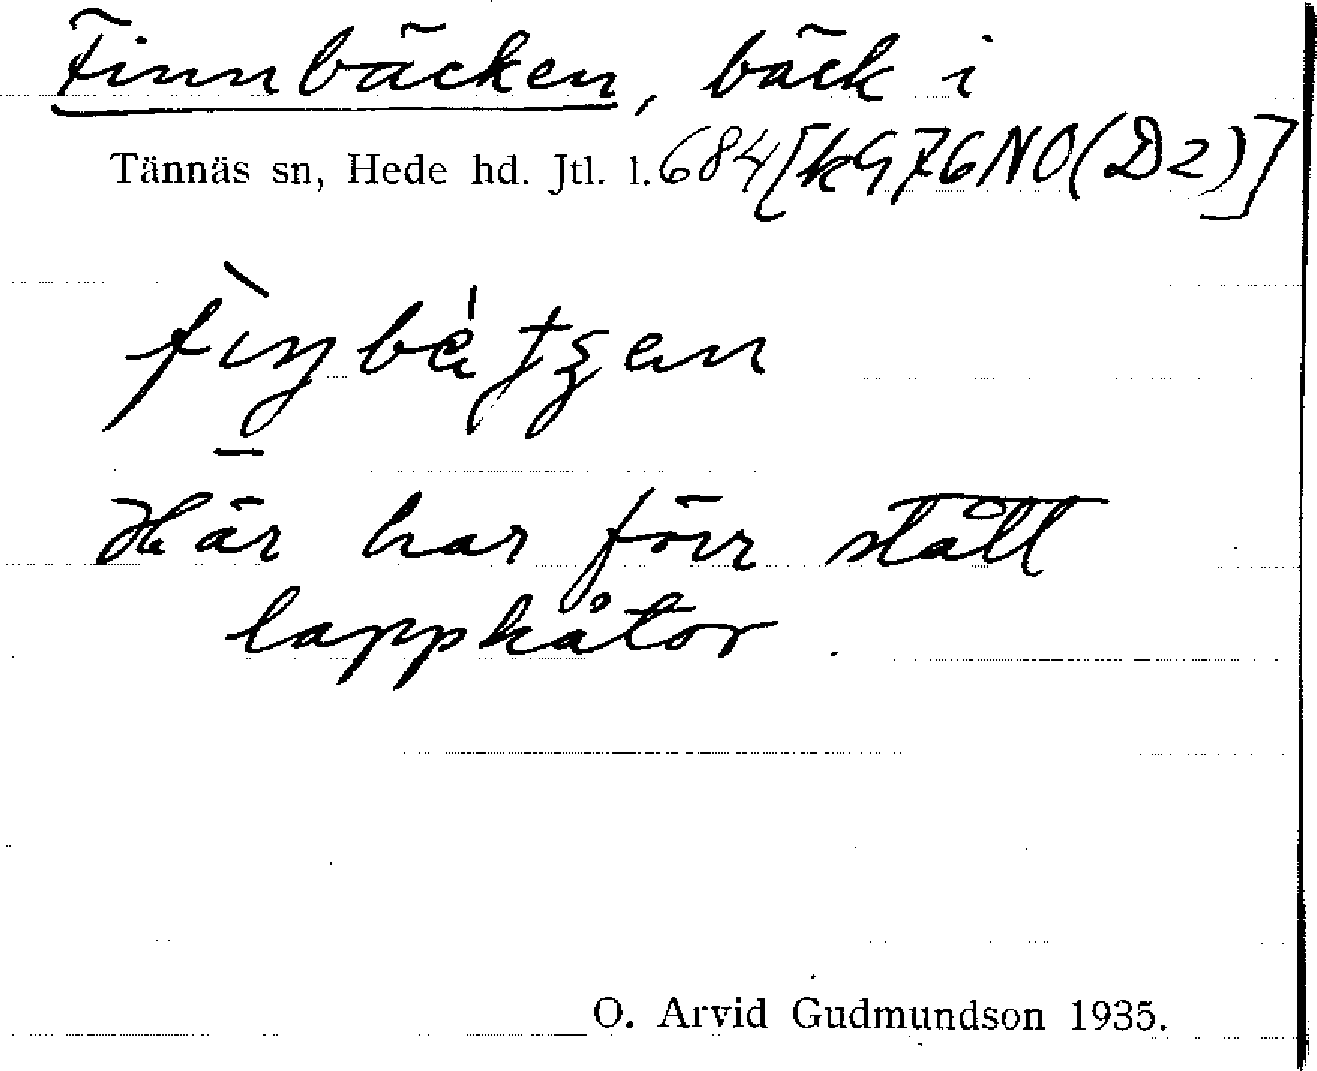 Finnbäcken, bäck i
Tännäs sn, Hede hd. Jtl. l. 684 [k976NO(D2)]
Här har förr stått
lappkåtor.
O. Arvid Gudmundson 1935.